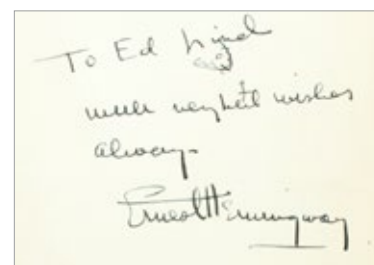 To Ed
with very best wishes
always -
Ernest Hemingway